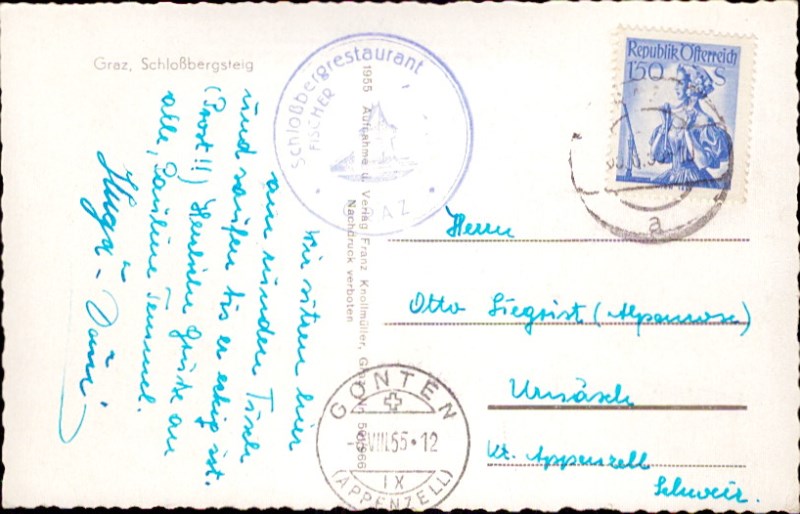 Graz, Schloßbergsteig
Schloßbergrestaurant
FISCHER
GRAZ
1955 Aufnahme u. Verlag Franz Knollmüller, Graz
Nachdruck verboten
Wir sitzen hier
am runden Tisch
und saufen bis er eckig ist.
(Prost!!) Herzliche Grüße an
alle,
Republik Österreich
1'50 S
a
Herrn
Otto Siegrist (Alpenrose)
Urnäsch
Kt. Appenzell
Schweiz.
GONTEN
VIII.55-12
IX
(APPENZELL)